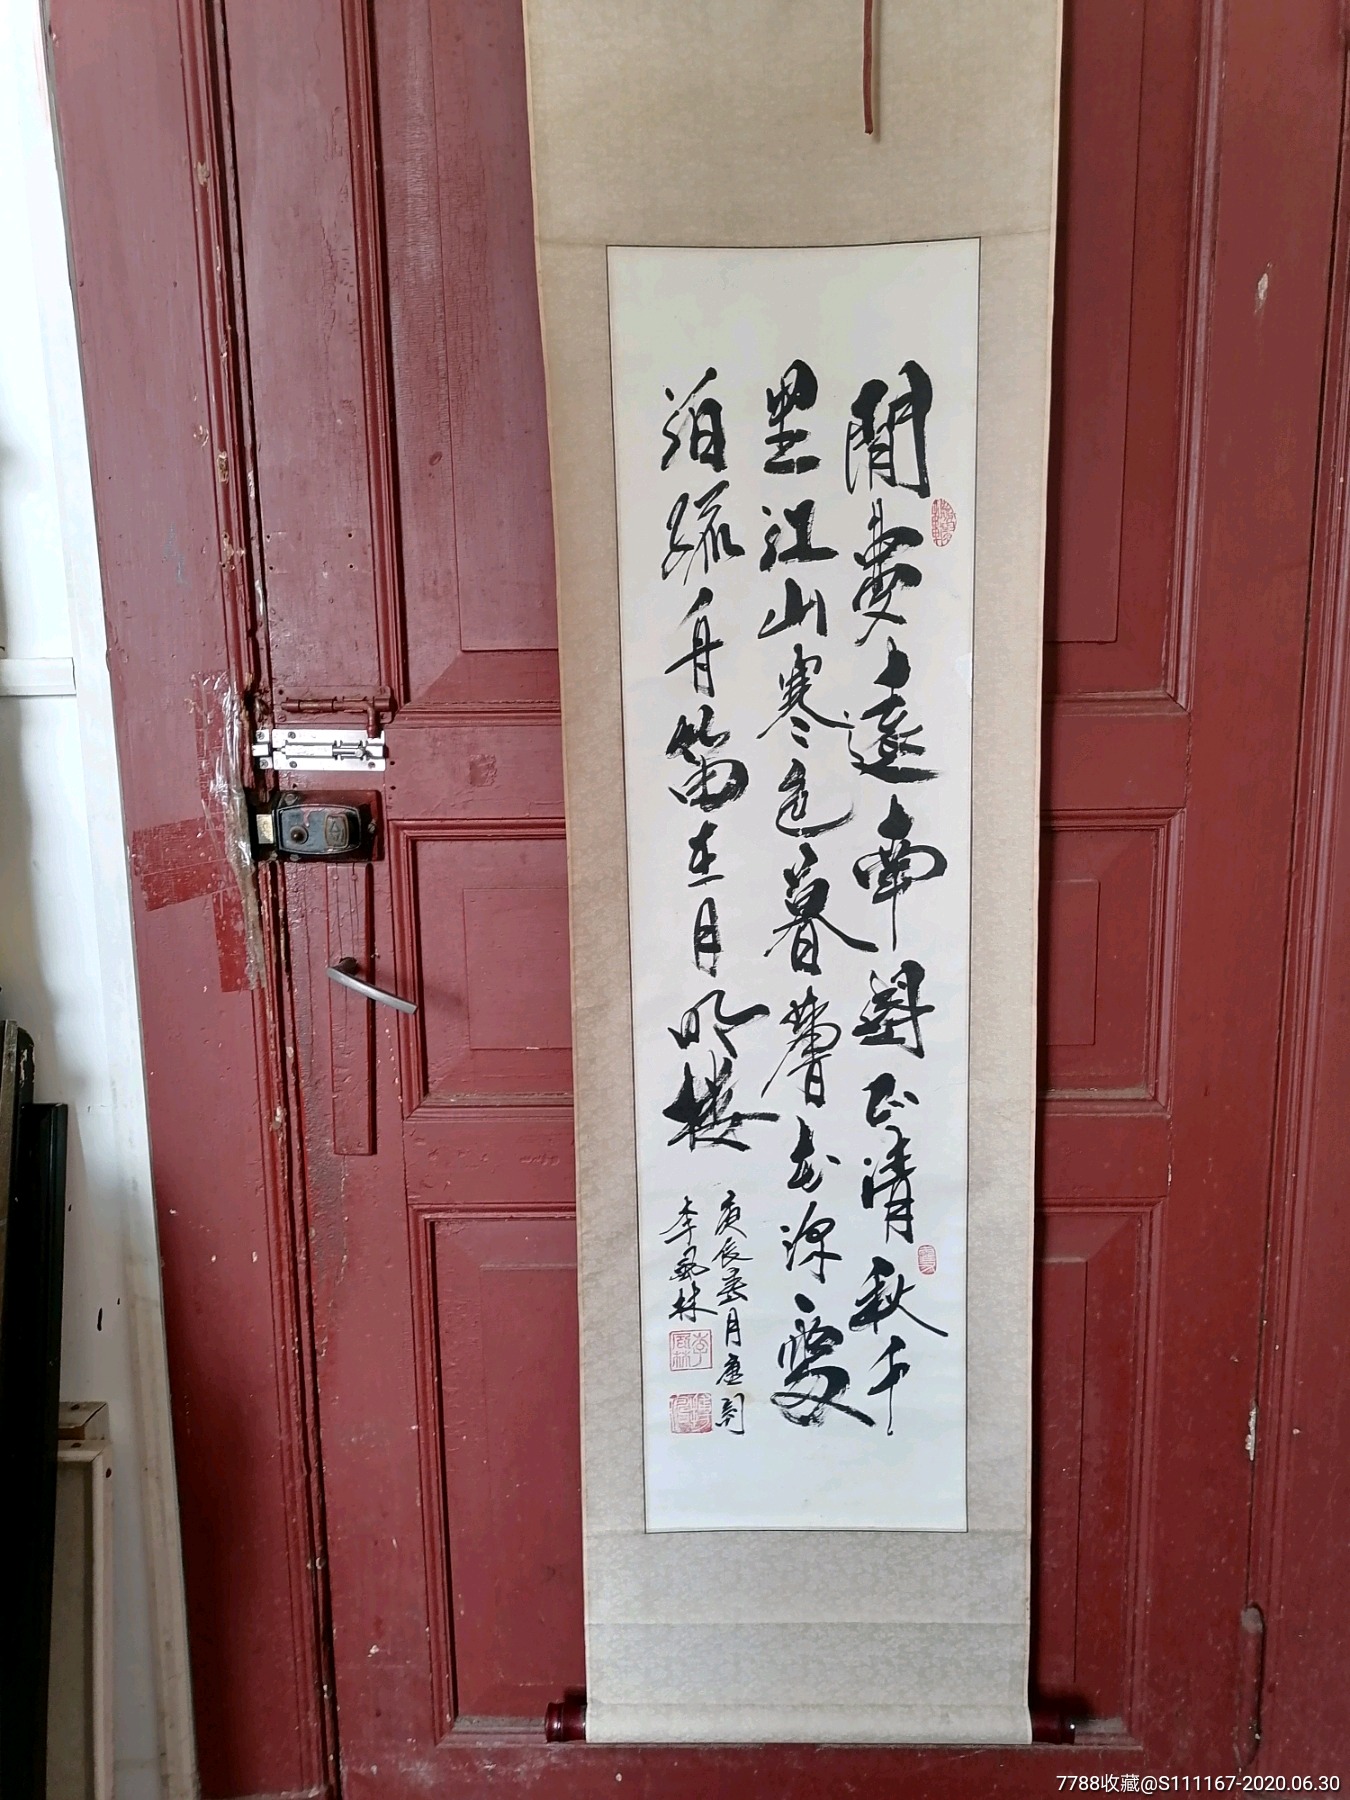 閒夢遠南國正清秋千
里江山寒色暮蘆花深處
泊孤舟笛在月明樓
庚辰春月
李風林
7788收藏@S111167-2020.06.30